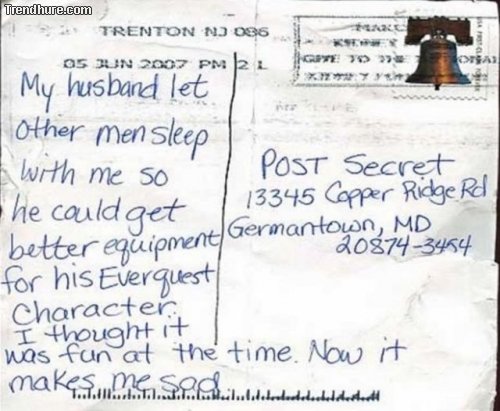 Trendhure.com
TRENTON NJ 086
05 JUN 2007 PM 2 L
My husband let
other men sleep
with me so
he could get
better equipment
for his Everquest
Character.
I thought it
was fun at the time. Now it
makes me sad.
POST Secret
13345 Copper Ridge Rd
Germantown, MD
20874-3454